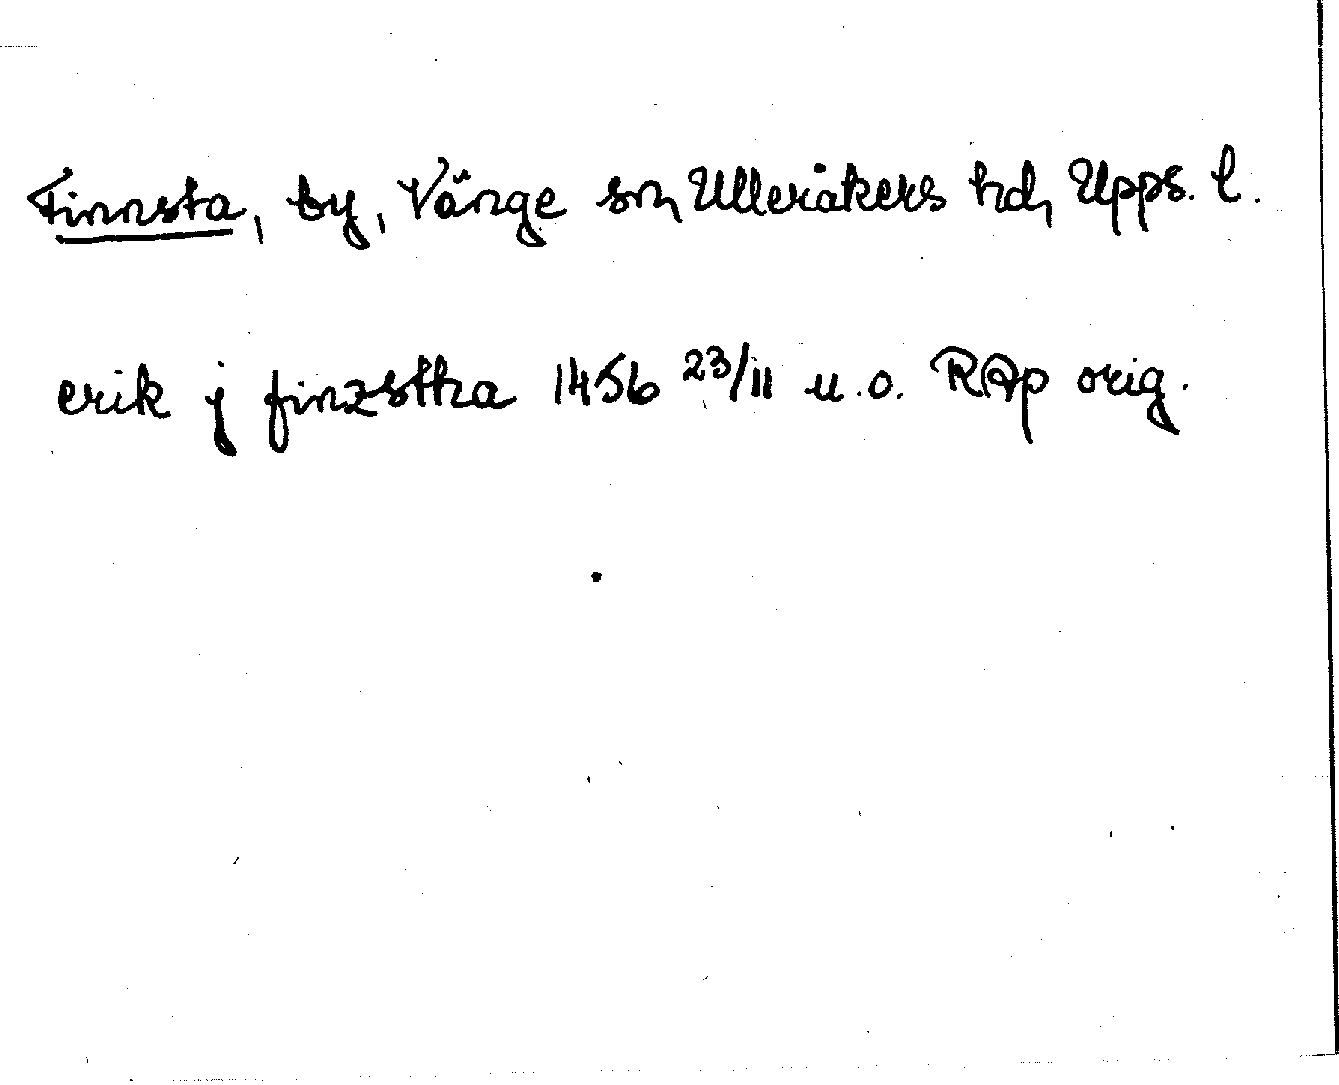 Finnsta, by, Vänge sn, Ulleråkers hd, Upps. l.
erik j finzstha 1456 23/11 u.o. RAp orig.